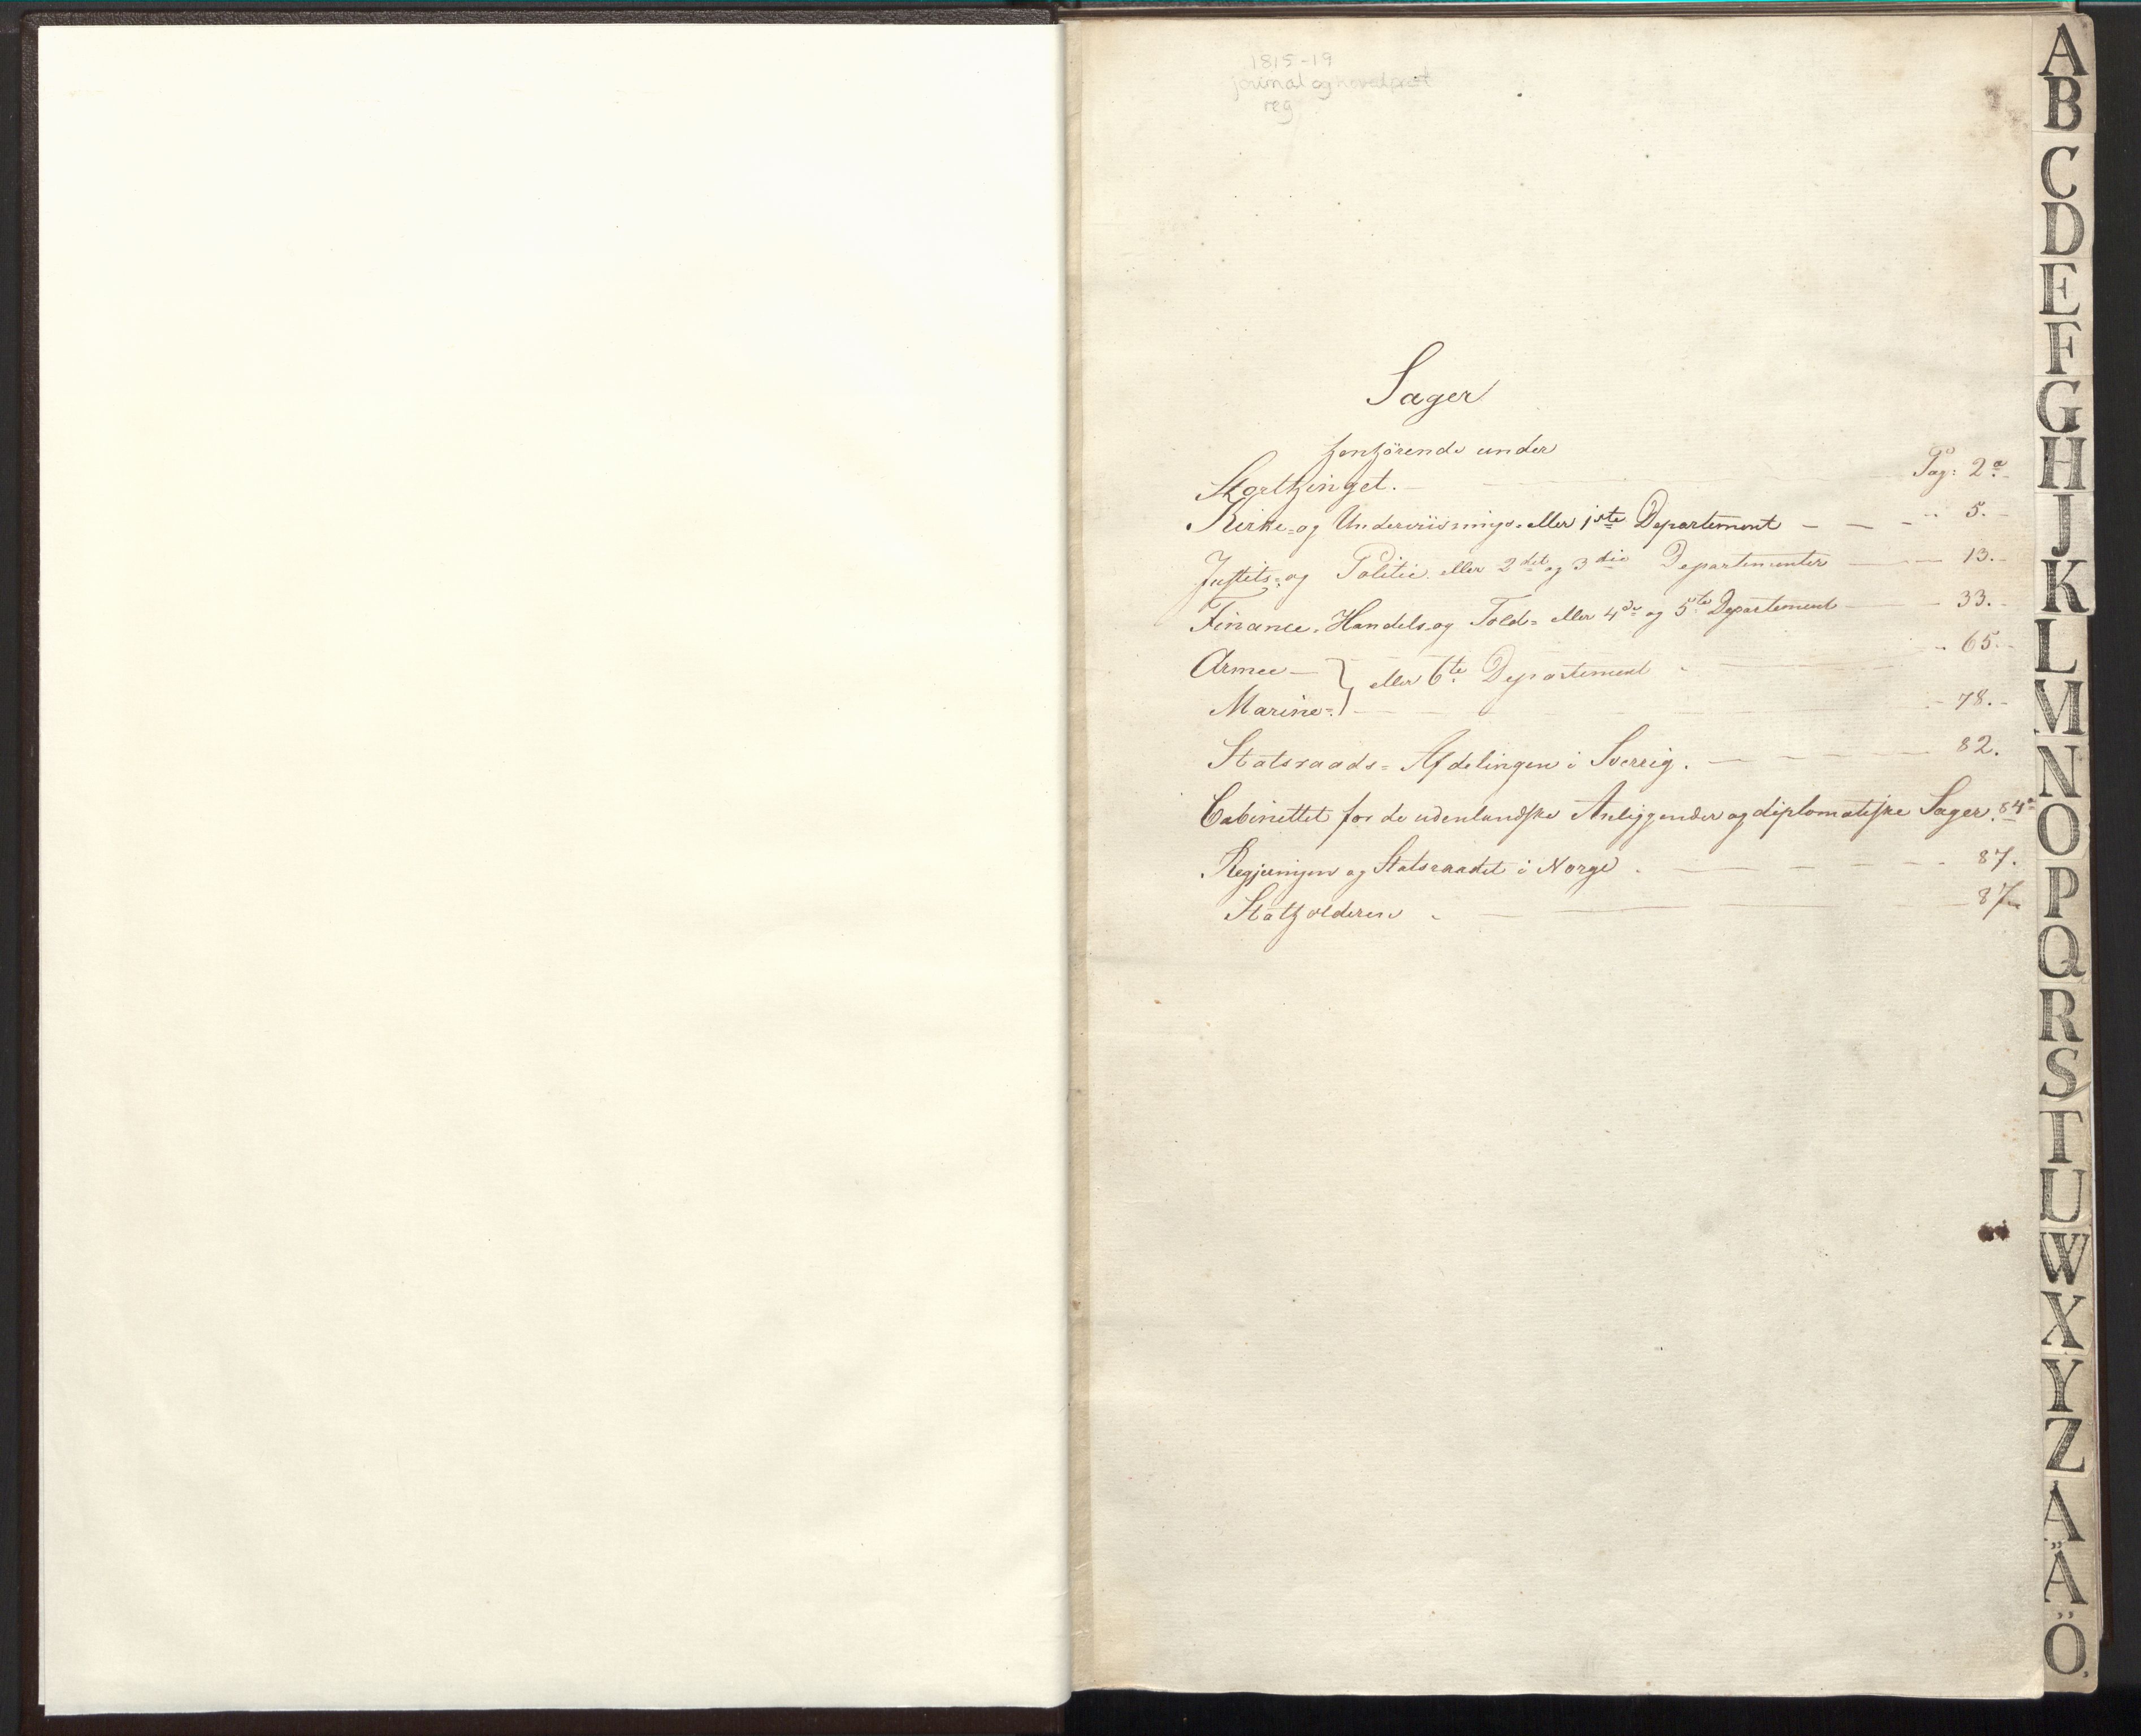 1815-19
journal og
reg
Sager
henhörende under
Storthinget. Pag: 2a
Kirke= og Underviisnings= eller 1ste Departement 5.
Justits= og Politie= eller 2det og 3die Departementer 13.
Finance= Handels= og Told= eller 4de og 5te Departement 33.
Armee eller 6te Departement 65.
Marine= 78.
Statsraads= Afdelingen i Sverrig. 82.
Cabinettet for de udenlandske Anliggender og diplomatiske Sager. 84a
Regjeringen og Statsraadet i Norge 87.
Statholderen 87.
A
B
C
D
E
F
G
H
J
K
L
M
N
O
P
Q
R
S
T
U
W
X
Y
Z
A
Ä
Ö